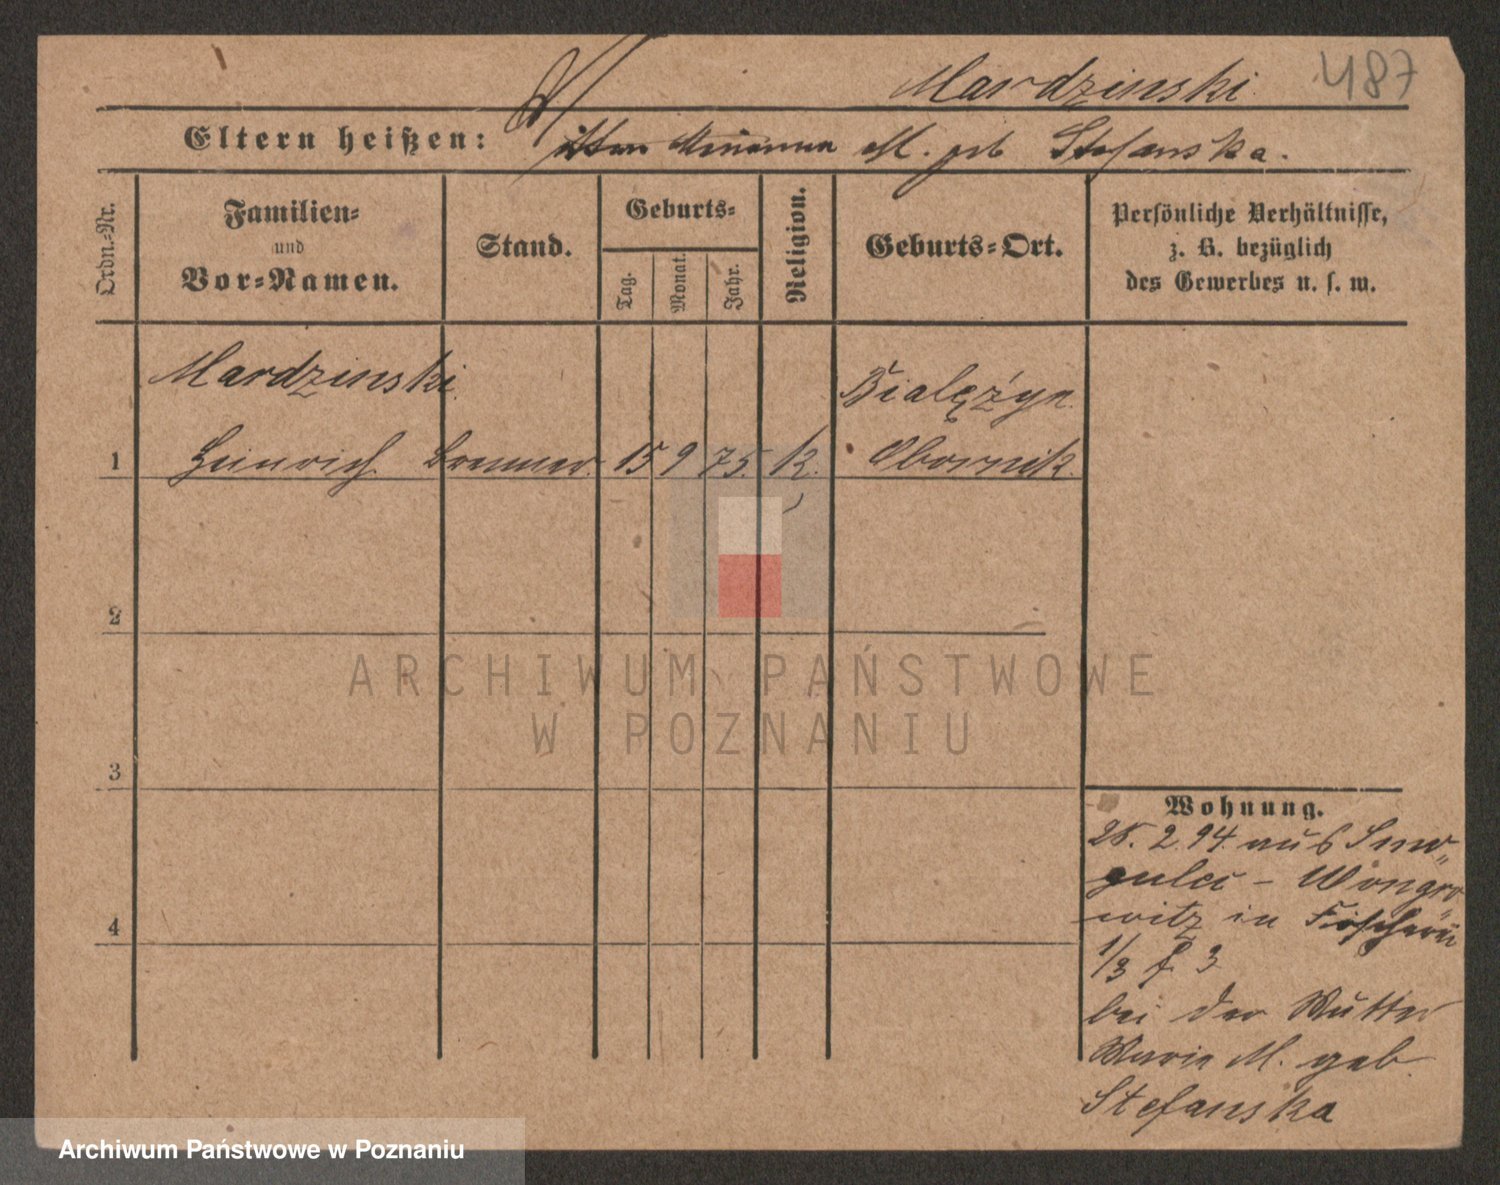 Mardzinski 487
Eltern heißen: M. geb Stefanska.
Ordn.-Nr.
Familien-
und
Vor-Namen.
Stand.
Geburts-
Tag.
Monat.
Jahr.
Religion.
Geburts-Ort.
Persönliche Verhältnisse,
z. B. bezüglich
des Gewerbes u. s. w.
Mardzinski Bialężyn
1 Heinrich Brenner 15 9 75. k. Obornik
2
ARCHIWUM PAŃSTWOWE
W POZNANIU
3
Wohnung.
25. 2. 94. aus Smo-
gulec - Wongro
witz in Fischerei
1/3 f. 3
4
bei der Mutter
Marie M. geb.
Stefanska
Archiwum Państwowe w Poznaniu